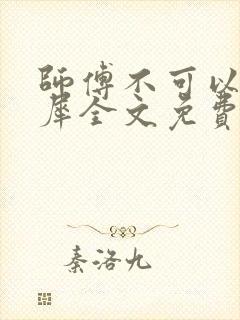 師傅不可以
犀全文免費
秦洛九